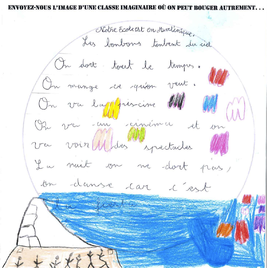 ENVOYEZ-NOUS L'IMAGE D'UNE CLASSE IMAGINAIRE OÙ ON PEUT BOUGER AUTREMENT...
Notre école est en Martinique.
Les bonbons tombent du ciel
On dort tout le temps.
On mange ce qu'on veut.
On va à la piscine
On va au cinéma et on
va voir des spectacles
La nuit on ne dort pas,
on danse car c'est